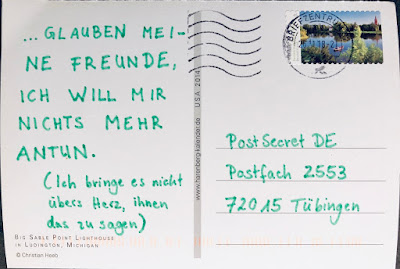 ... GLAUBEN MEI-
NE FREUNDE,
ICH WILL MIR
NICHTS MEHR
ANTUN.
(Ich bringe es nicht
übers Herz, ihnen
das zu sagen)
BIG SABLE POINT LIGHTHOUSE
IN LUDINGTON, MICHIGAN
© Christian Heeb
www.harenberg-kalender.de · USA 2014
BRIEFZENTRUM
PostSecret DE
Postfach 2553
72015 Tübingen